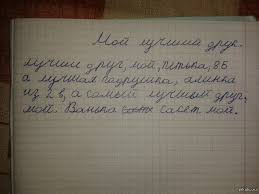 Мой лучший друг.
лучши друг, мой, петька, 8б
а лучшая падрушка, алинка
из 2в, а самый лучший друг,
мой. Ванька сасет мой.